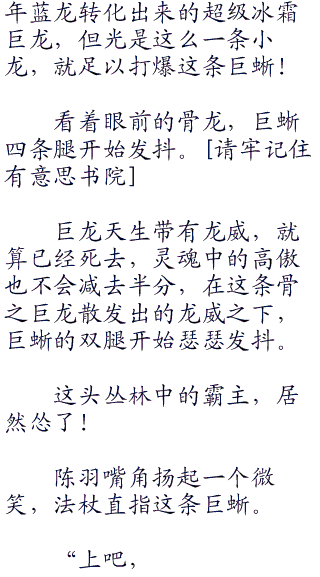 年蓝龙转化出来的超级冰霜
巨龙，但光是这么一条小
龙，就足以打爆这条巨蜥！
看着眼前的骨龙，巨蜥
四条腿开始发抖。[请牢记住
有意思书院]
巨龙天生带有龙威，就
算已经死去，灵魂中的高傲
也不会减去半分，在这条骨
之巨龙散发出的龙威之下，
巨蜥的双腿开始瑟瑟发抖。
这头丛林中的霸主，居
然怂了！
陈羽嘴角扬起一个微
笑，法杖直指这条巨蜥。
“上吧，